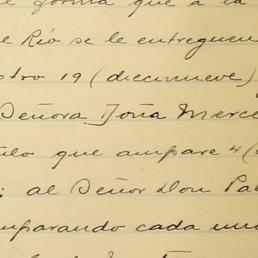 forma que a la
Rio se le entreguen
stro 19 (diecinueve)
Señora Doña Merce
ulo que ampare 4 (
; al Señor Don Pa
mparando cada un